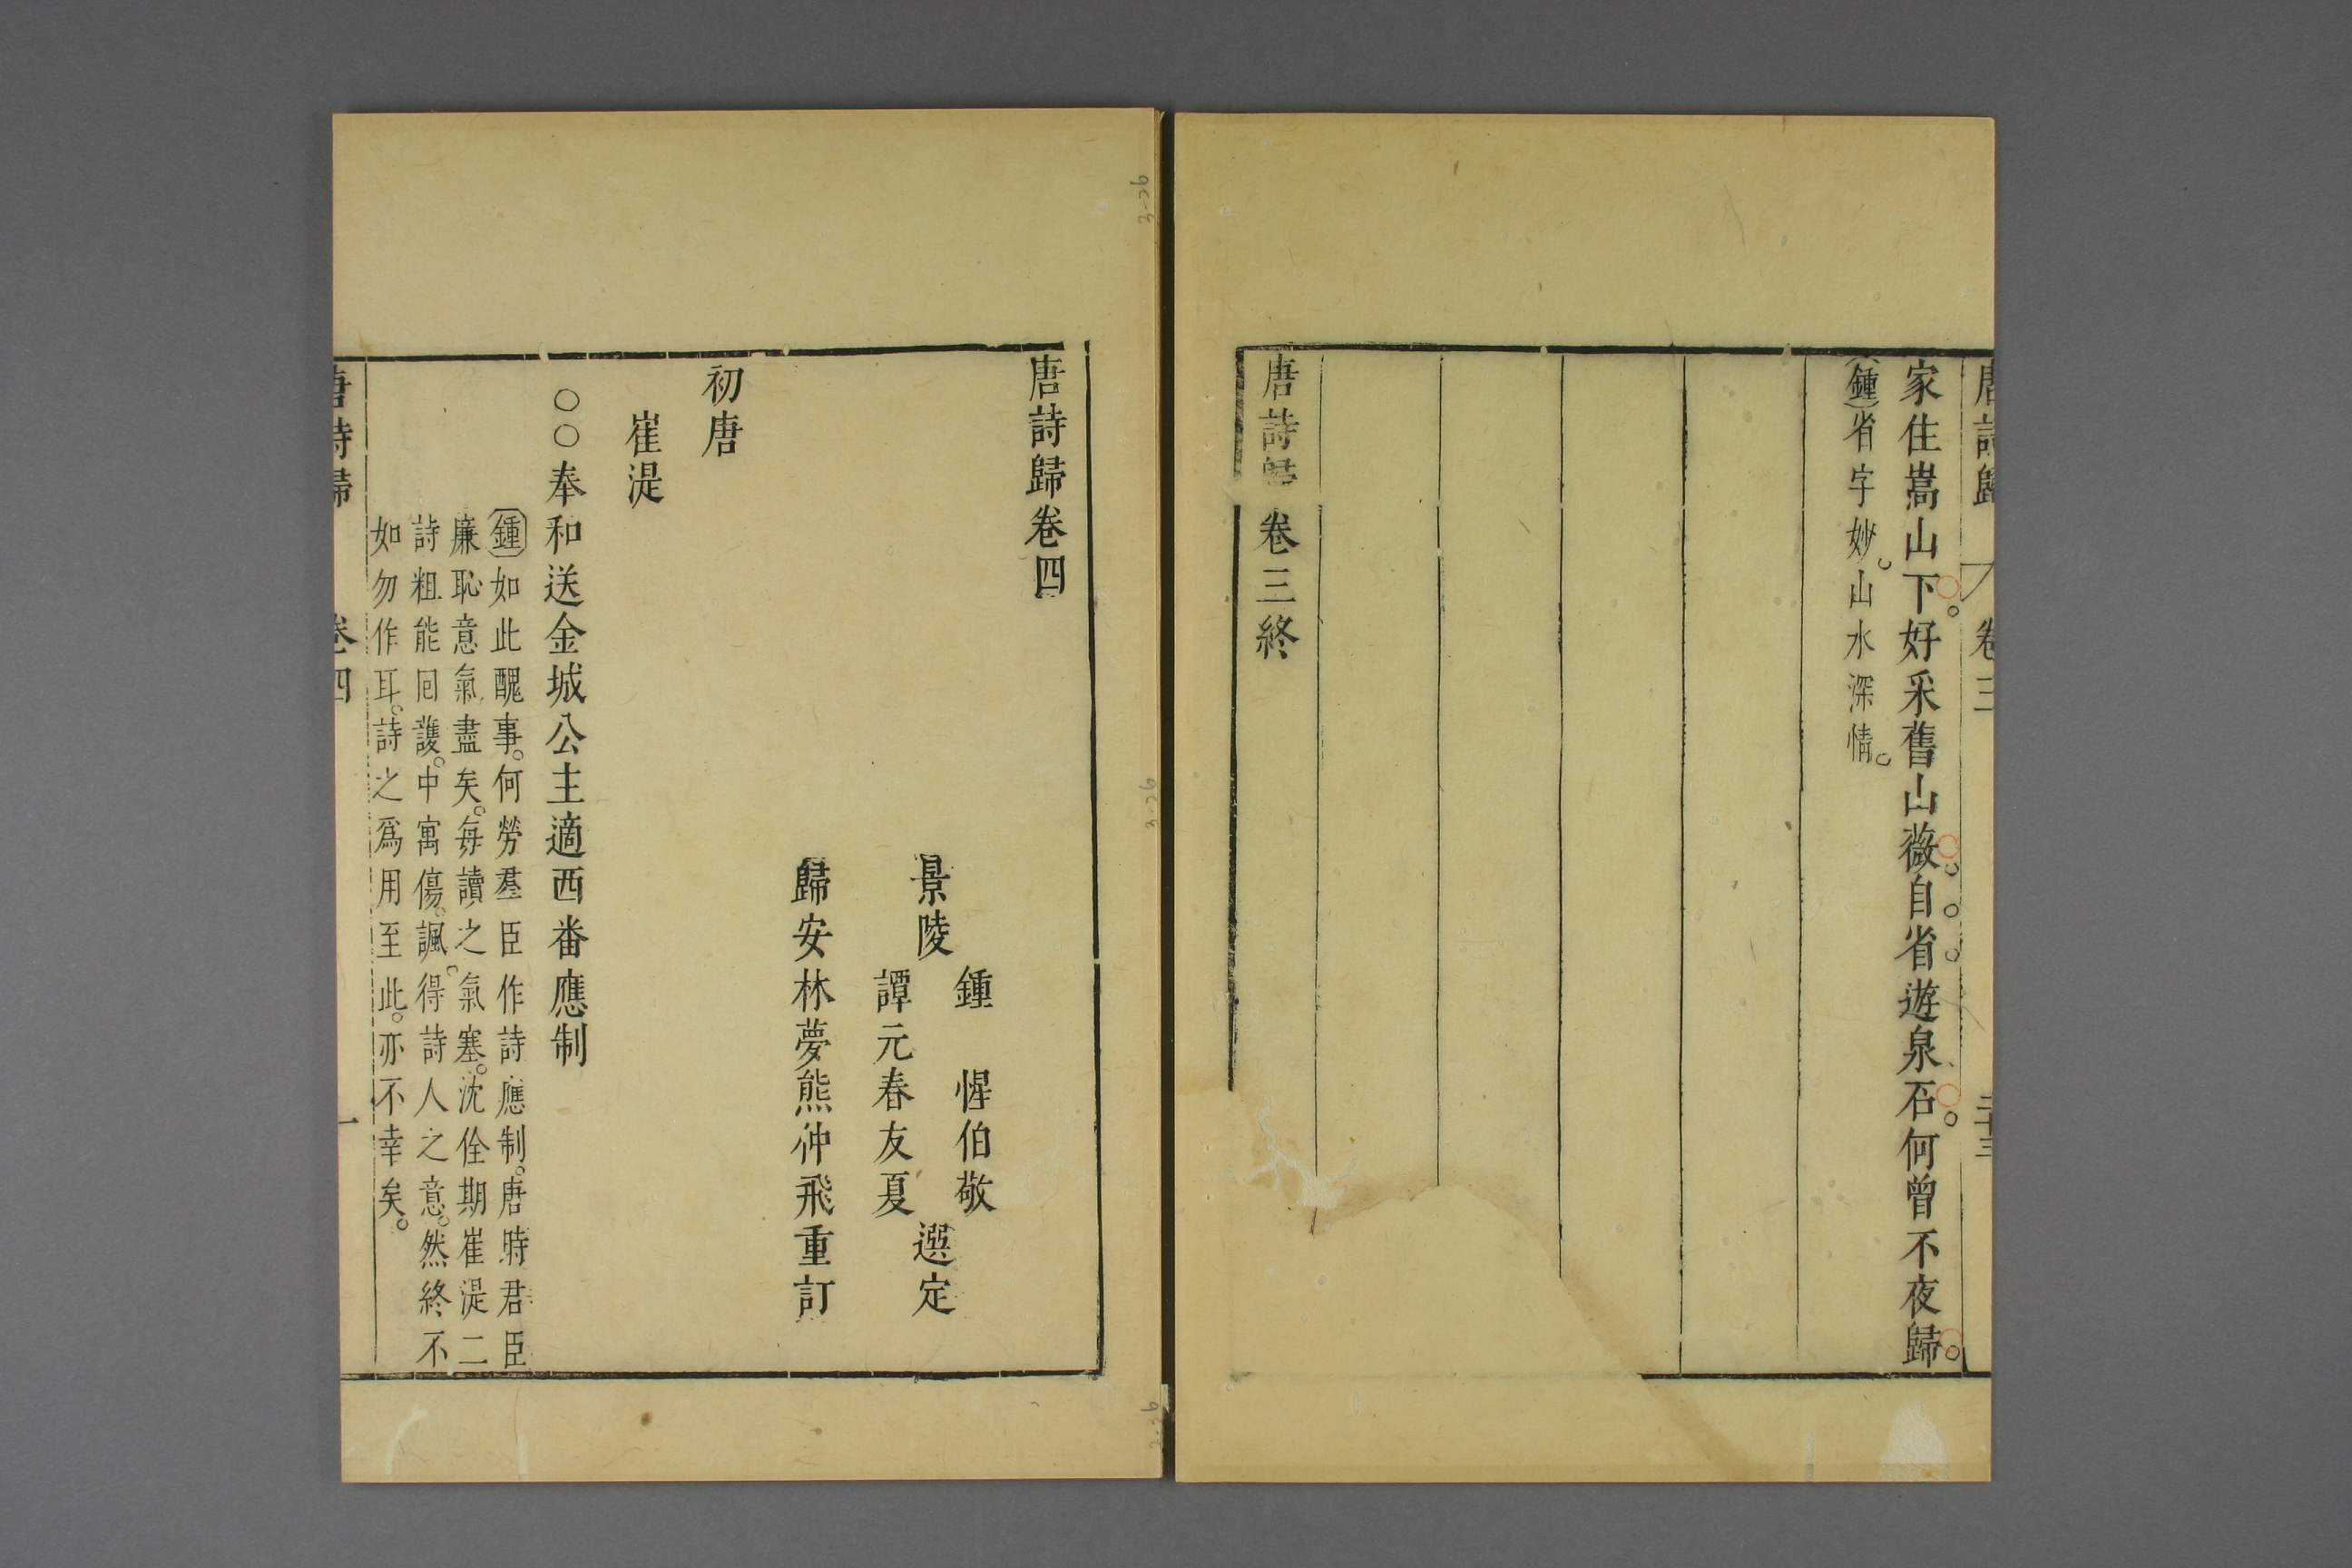 唐詩歸 卷三 二十三
家住嵩山下。好采舊山薇。自省遊泉石。何曾不夜歸。
鍾省字妙。山水深情。
唐詩歸卷三終
唐詩歸卷四
鍾惺伯敬
景陵 選定
譚元春友夏
歸安林夢熊仲飛重訂
初唐
崔湜
○○奉和送金城公主適西番應制
鍾如此醜事。何勞羣臣作詩應制。唐時君臣
廉恥意氣盡矣。每讀之氣塞。沈佺期崔湜二
詩粗能回護。中寓傷。諷。得詩人之意。然終不
如勿作耳。詩之爲用至此。亦不幸矣。
唐詩歸 卷四 一